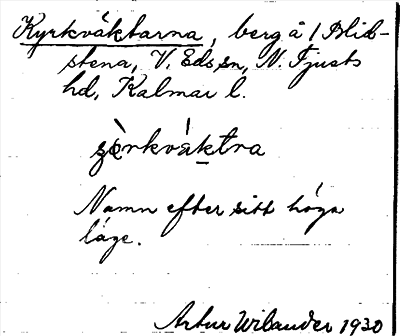 Kyrkväktarna, berg å / Blid-
stena, V. Eds sn, N. Tjusts
hd, Kalmar l.
Namn efter sitt höga
läge.
Artur Wilander 1930